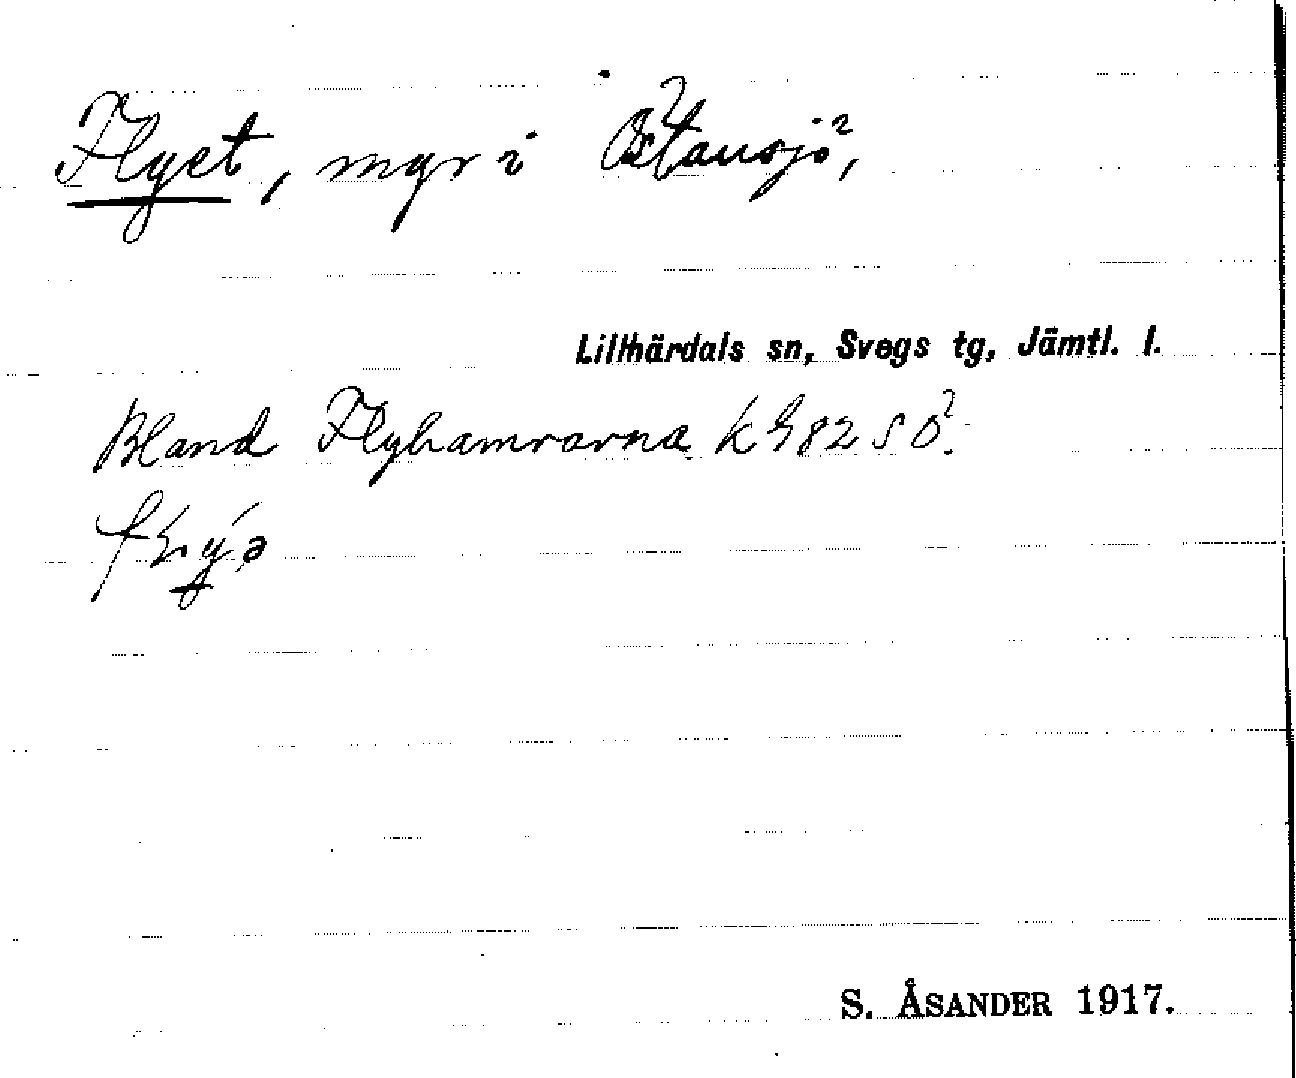 Flyet, mgr i Östansjö,
Lillhärdals sn, Svegs tg, Jämtl. l.
Bland Flyhamrarna k 482 SÖ.
S. ÅSANDER 1917.